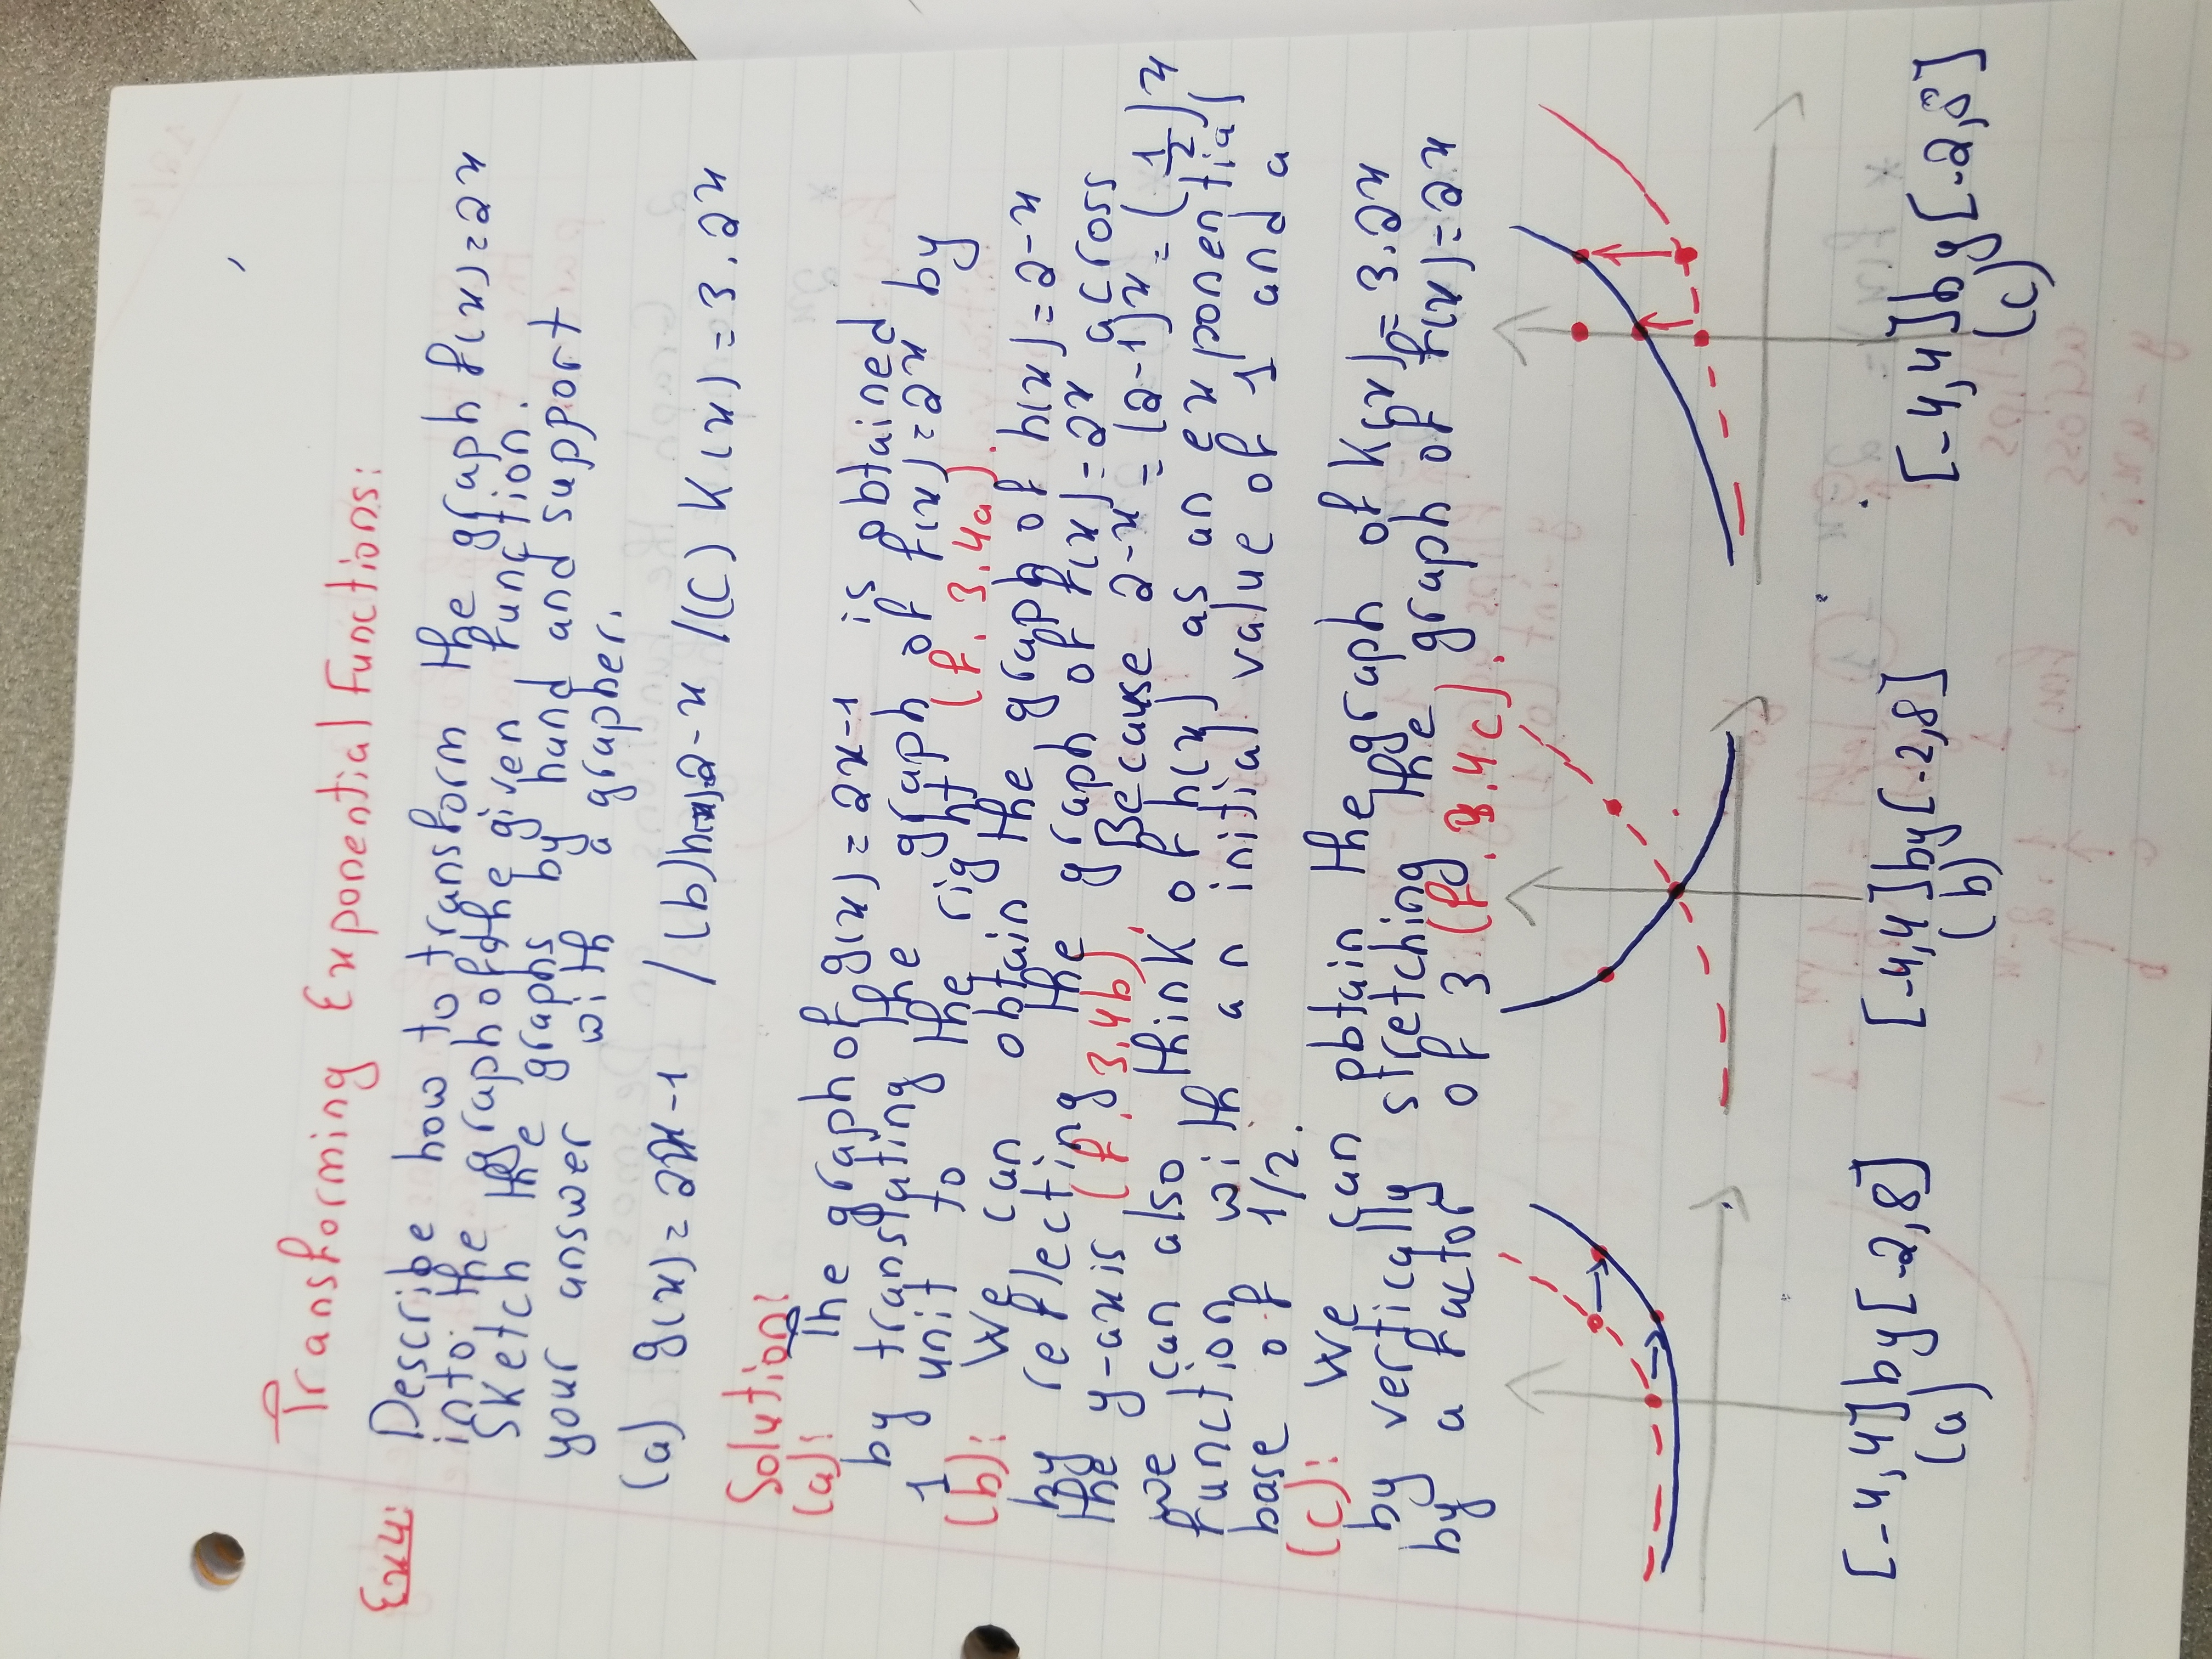 Transforming Exponential Functions:
Ex4:
Describe how to transform the graph f(x)=2x
into the graph of the given function.
Sketch the graphs by hand and support
your answer with a grapher.
(a) g(x)=2x-1 / (b) h(x)=2-x / (C) K(x)=3.2x
Solution:
(a): The graph of g(x)=2x-1 is obtained
by translating the graph of f(x)=2x by
1 unit to the right (f. 3.4a).
(b): We can obtain the graph of h(x)=2-x
by reflecting the graph of f(x)=2x across
the y-axis (fig 3.4b). Because 2-x=(2-1)x=(1/2)x
we can also think of h(x) as an exponential
function with an initial value of 1 and a
base of 1/2.
(C): We can obtain the graph of K(x)=3.2x
by vertically stretching the graph of f(x)=2x
by a factor of 3 (f. 3.4c).
[-4,4] by [-2,8] [-4,4] by [-2,8] [-4,4] by [-2,8]
(a) (b) (c)